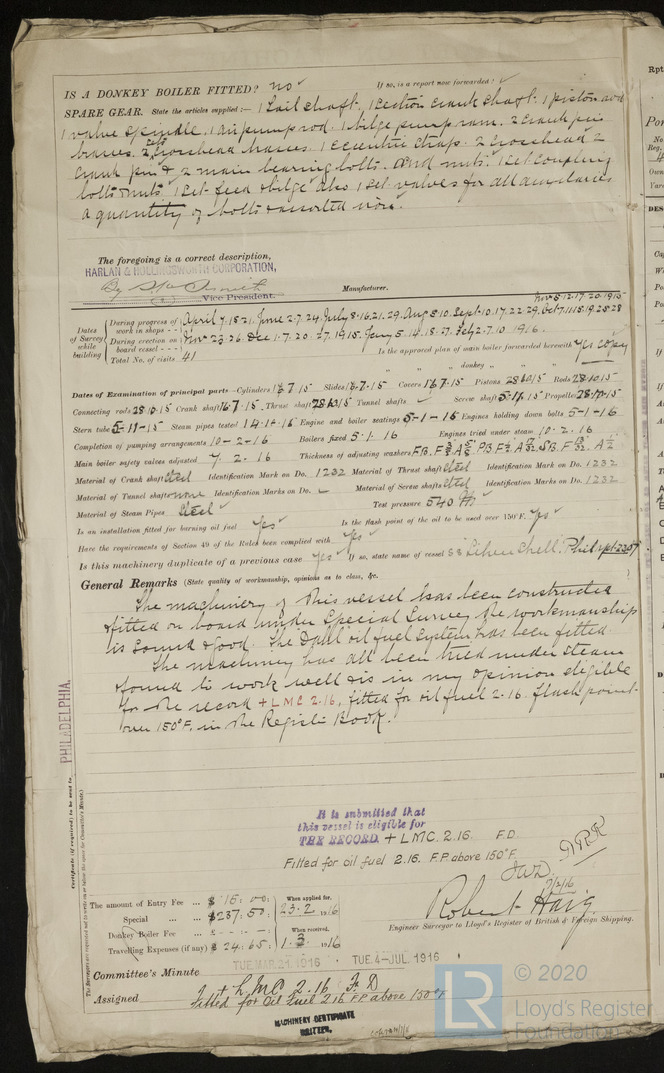 IS A DONKEY BOILER FITTED? no If so, is a report now forwarded?
SPARE GEAR. State the articles supplied:— 1 Tail shaft. 1 section crank shaft. 1 piston and
1 valve spindle. 1 air pump rod. 1 bilge pump ram. 2 crank pin
brasses. 2 crosshead brasses. 1 eccentric strap. 2 crosshead 2
crank pin & 2 main bearing bolts. and nuts. 1 set coupling
bolts & nuts. 1 set feed & bilge also 1 set valves for all auxiliaries
a quantity of bolts & assorted iron.
The foregoing is a correct description,
HARLAN & HOLLINGSWORTH CORPORATION,
By Vice President. Manufacturer.
Nov 5.12.17.20.1915
Dates of Survey while building
During progress of work in shops - - April 7.15.21. June 2.7.24. July 8.16.21.29. Aug 5.10. Sept. 10.17.22.29. Oct 7.11.15.19.25.28
During erection on board vessel - - - Nov 23.26. Dec 1.7.20.27.1915. Jany 5.14.18.27. Feby 2.7.10 1916.
Total No. of visits 41 Is the approved plan of main boiler forwarded herewith Yes copy
" " " donkey " " "
Dates of Examination of principal parts—Cylinders 16.7.15 Slides 16.7.15 Covers 16.7.15 Pistons 28.10.15 Rods 28.10.15
Connecting rods 28.10.15 Crank shaft 16.7.15 Thrust shaft 28.10.15 Tunnel shafts Screw shaft 5.11.15 Propeller 28.10.15
Stern tube 5-11-15 Steam pipes tested 14.1.16 Engine and boiler seatings 5-1-16 Engines holding down bolts 5-1-16
Completion of pumping arrangements 10-2-16 Boilers fixed 5.1.16 Engines tried under steam 10.2.16
Main boiler safety valves adjusted 7.2.16 Thickness of adjusting washers
Material of Crank shaft steel Identification Mark on Do. 1232 Material of Thrust shaft steel Identification Mark on Do. 1232
Material of Tunnel shafts none Identification Marks on Do. Material of Screw shafts steel Identification Marks on Do. 1232
Material of Steam Pipes Steel Test pressure 540 lbs
Is an installation fitted for burning oil fuel Yes Is the flash point of the oil to be used over 150°F. Yes
Have the requirements of Section 49 of the Rules been complied with Yes
Is this machinery duplicate of a previous case Yes If so, state name of vessel SS Phil. rpt 2307
General Remarks (State quality of workmanship, opinions as to class, &c.
The machinery of this vessel has been constructed
& fitted on board under Special Survey the workmanship
is sound & good. The Dahl oil fuel system has been fitted.
The machinery has all been tried under steam
& found to work well & is in my opinion eligible
for the record + LMC 2.16, fitted for oil fuel 2.16. flash point
over 150°F. in the Register Book.
PHILADELPHIA.
Certificate (if required) to be sent to
(The Surveyors are requested not to write on or below the space for Committee's Minute.)
It is submitted that
this vessel is eligible for
THE RECORD + LMC. 2.16. F.D.
Fitted for oil fuel 2.16. F.P. above 150°F.
The amount of Entry Fee ... $ 15.00: When applied for,
Special ... ... $237.50: 23.2.1916
Donkey Boiler Fee ... When received,
Travelling Expenses (if any) $ 24.65: 1.3.1916
Robert Haig
Engineer Surveyor to Lloyd's Register of British & Foreign Shipping.
TUE. MAR. 21 1916 · TUE. 4-JUL. 1916
Committee's Minute
Assigned + LMC 2.16 F.D
Fitted for Oil Fuel 2.16 F.P. above 150°F
MACHINERY CERTIFICATE
WRITTEN.
LR © 2020
Lloyd's Register
Foundation
Rpt